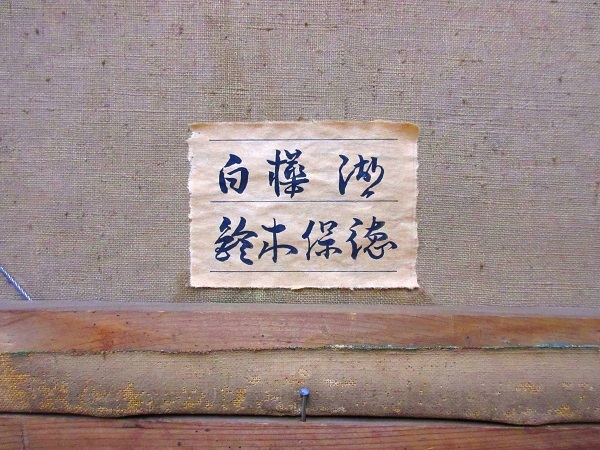 白樺湖
鈴木保徳